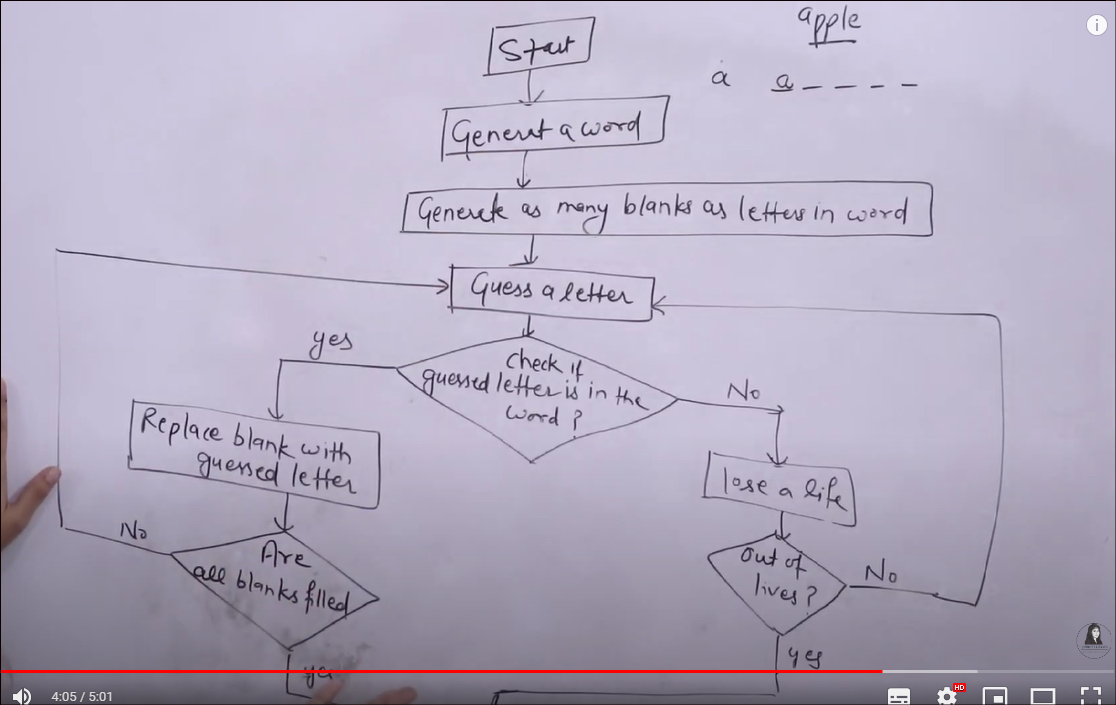 apple
Start
a a _ _ _ _
Generat a word
Generate as many blanks as letters in word
Guess a letter
yes
Check if
guessed letter is in the
word ?
No
Replace blank with
guessed letter
lose a life
No
Are
all blanks filled
Out of
lives ?
No
yes
yes
4:05 / 5:01
HD
i